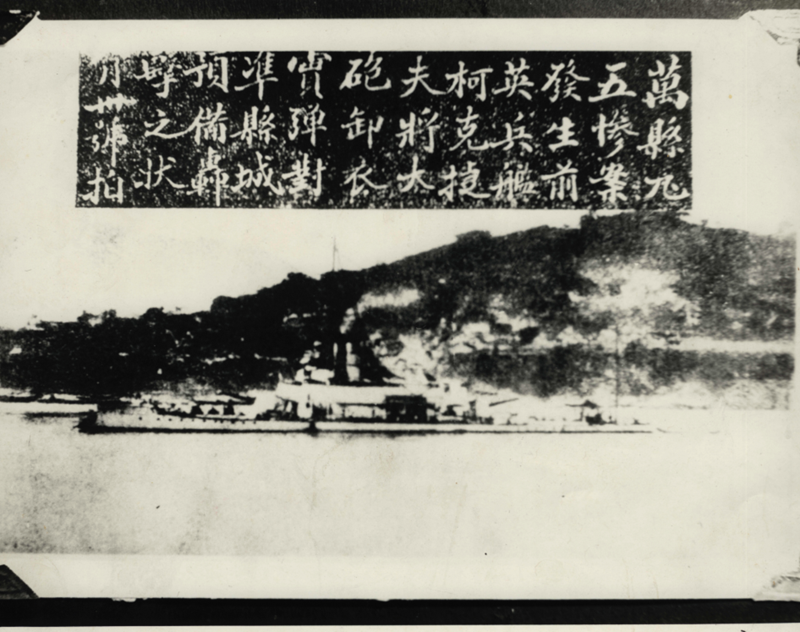 萬縣九
五慘案
發生前
英兵艦
柯克捷
夫將大
砲卸衣
實彈對
凖縣城
預備轟
擊之狀
月卅號拍